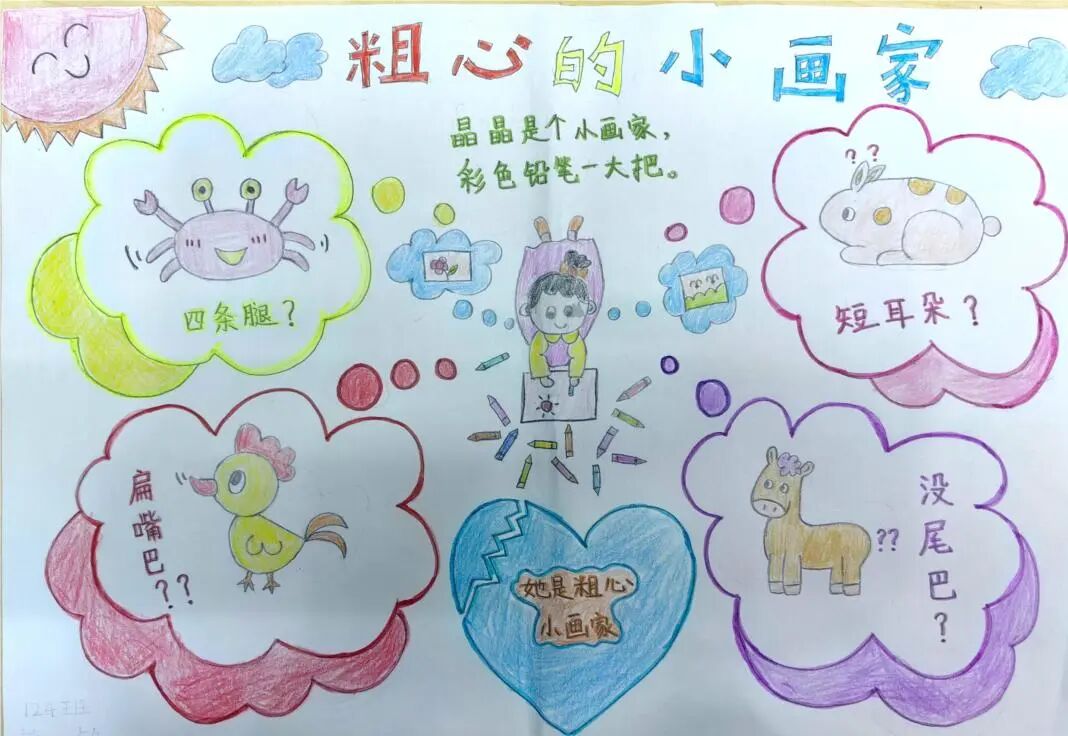 粗心的小画家
晶晶是个小画家，
彩色铅笔一大把。
四条腿？
? ?
短耳朵？
扁嘴巴？？
??
没尾巴？
她是粗心
小画家
124班